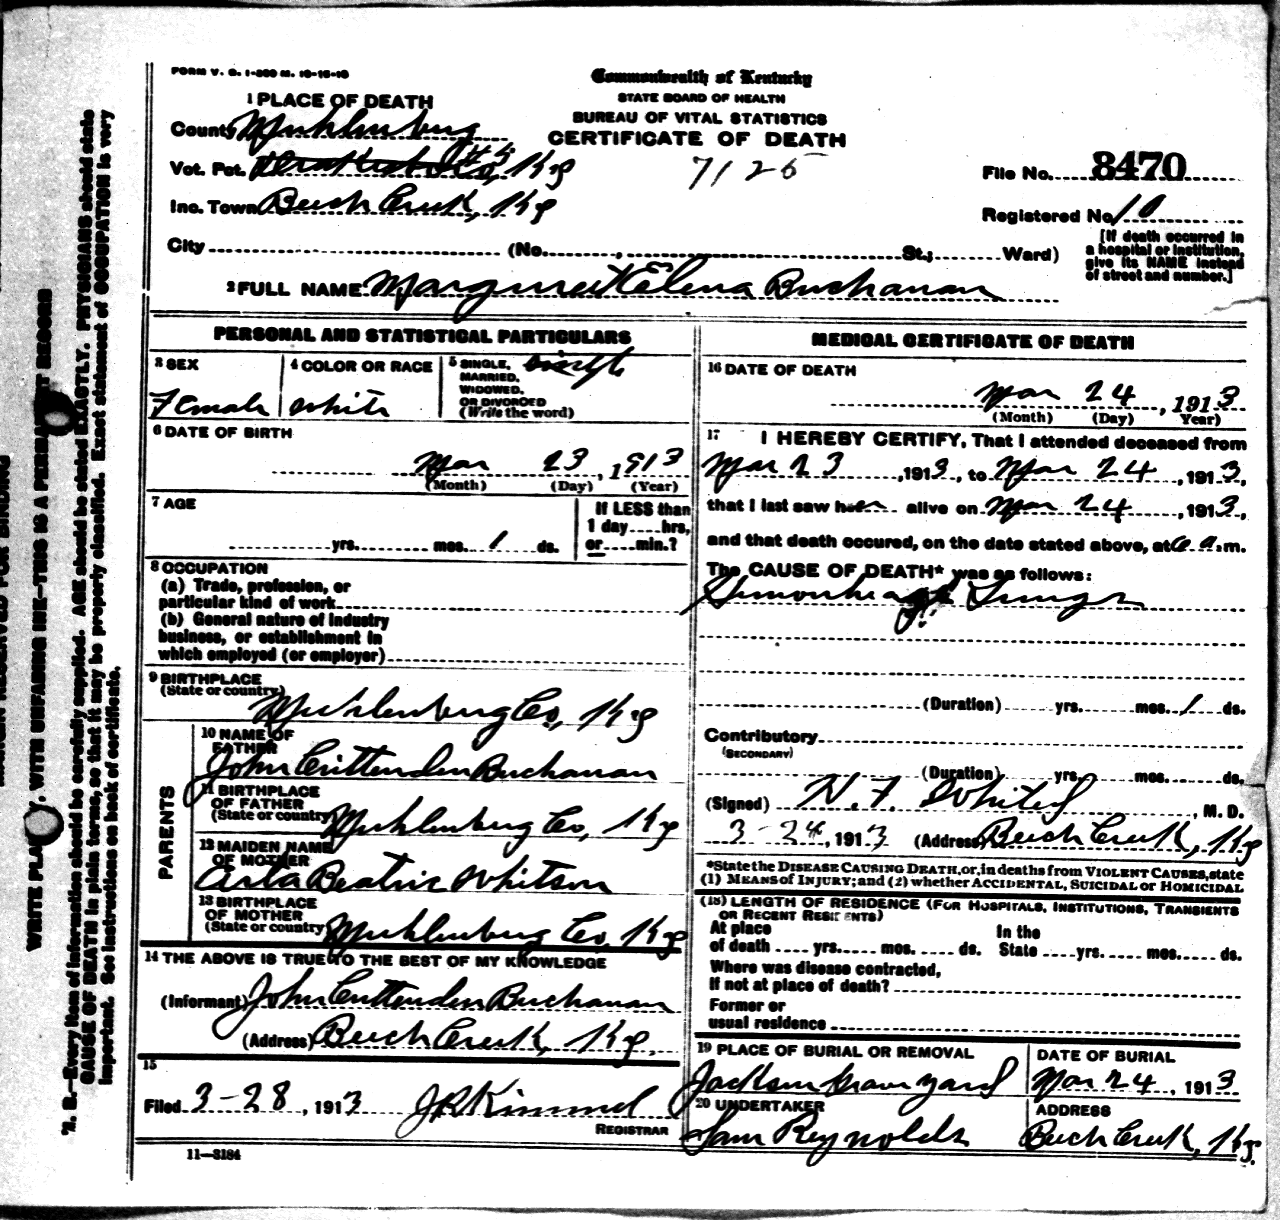 FORM V. S. 1-500 M. 10-15-10
Commonwealth of Kentucky
STATE BOARD OF HEALTH
BUREAU OF VITAL STATISTICS
CERTIFICATE OF DEATH
7125
1 PLACE OF DEATH
County Muhlenburg
Vot. Pct. #5, Ky
Inc. Town Beech Creek, Ky
City (No. , St.; Ward)
File No. 8470
Registered No. 10
[If death occurred in
a hospital or institution,
give its NAME instead
of street and number.]
2 FULL NAME Marguriet Elena Buchanan
PERSONAL AND STATISTICAL PARTICULARS
3 SEX
Female
4 COLOR OR RACE
White
5 SINGLE, Single
MARRIED,
WIDOWED,
OR DIVORCED
(Write the word)
6 DATE OF BIRTH
Mar 23, 1913
(Month) (Day) (Year)
7 AGE
yrs. mos. 1 ds.
If LESS than
1 day hrs,
or min.?
8 OCCUPATION
(a) Trade, profession, or
particular kind of work
(b) General nature of industry
business, or establishment in
which employed (or employer)
9 BIRTHPLACE
(State or country)
Muhlenburg Co, Ky
PARENTS
10 NAME OF
FATHER
John Crittenden Buchanan
11 BIRTHPLACE
OF FATHER
(State or country) Muhlenburg Co, Ky
12 MAIDEN NAME
OF MOTHER
Arta Beatric Whitson
13 BIRTHPLACE
OF MOTHER
(State or country) Muhlenburg Co, Ky
14 THE ABOVE IS TRUE TO THE BEST OF MY KNOWLEDGE
(Informant) John Crittenden Buchanan
(Address) Beech Creek, Ky.
15
Filed 3-28, 1913 J R Kimmel
REGISTRAR
11-3184
MEDICAL CERTIFICATE OF DEATH
16 DATE OF DEATH
Mar 24, 1913
(Month) (Day) Year)
17 I HEREBY CERTIFY, That I attended deceased from
Mar 23, 1913, to Mar 24, 1913,
that I last saw her alive on Mar 24, 1913,
and that death occured, on the date stated above, at 6 a.m.
The CAUSE OF DEATH* was as follows:
Hemorrhage Lungs
(Duration) yrs. mos. 1 ds.
Contributory
(SECONDARY)
(Duration) yrs. mos. ds.
(Signed) H. F. , M. D.
3-24, 1913 (Address) Beech Creek, Ky
*State the DISEASE CAUSING DEATH, or, in deaths from VIOLENT CAUSES, state
(1) MEANS of INJURY; and (2) whether ACCIDENTAL, SUICIDAL or HOMICIDAL
(18) LENGTH OF RESIDENCE (FOR HOSPITALS, INSTITUTIONS, TRANSIENTS
OR RECENT RESIDENTS)
At place In the
of death yrs. mos. ds. State yrs. mos. ds.
Where was disease contracted,
If not at place of death?
Former or
usual residence
19 PLACE OF BURIAL OR REMOVAL
Jackson Grave yard
DATE OF BURIAL
Mar 24, 1913
20 UNDERTAKER
Sam Reynolds
ADDRESS
Beech Creek, Ky.
MARGIN RESERVED FOR BINDING
WRITE PLAINLY, WITH UNFADING INK—THIS IS A PERMANENT RECORD
N. B.—Every item of information should be carefully supplied. AGE should be stated EXACTLY. PHYSICIANS should state
CAUSE OF DEATH in plain terms, so that it may be properly classified. Exact statement of OCCUPATION is very
important. See instructions on back of certificate.